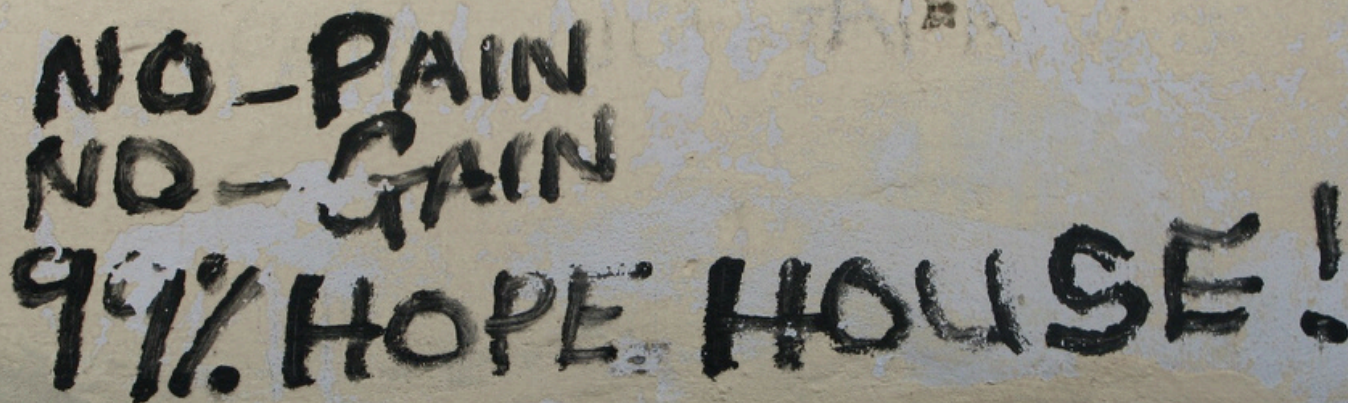 NO-PAIN
NO-GAIN
99% HOPE HOUSE!